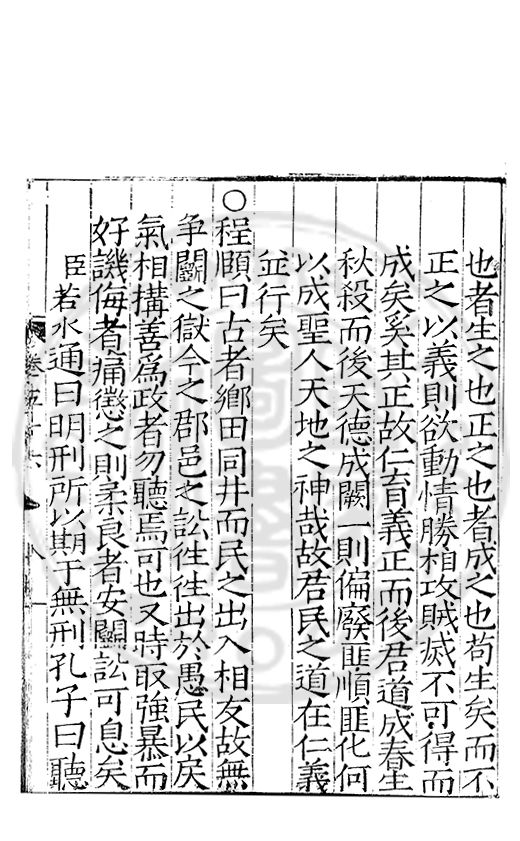 也者生之也正之也者成之也苟生矣而不
正之以義則欲動情勝相攻賊滅不可得而
成矣奚其正故仁育義正而後君道成春生
秋殺而後天德成闕一則偏廢匪順匪化何
以成聖人天地之神哉故君民之道在仁義
並行矣
○程頤曰古者鄉田同井而民之出入相友故無
爭鬭之獄今之郡邑之訟徃徃出於愚民以戾
氣相搆善為政者勿聽焉可也又時取強暴而
好譏侮者痛懲之則柔良者安鬭訟可息矣
臣若水通曰明刑所以期于無刑孔子曰聽